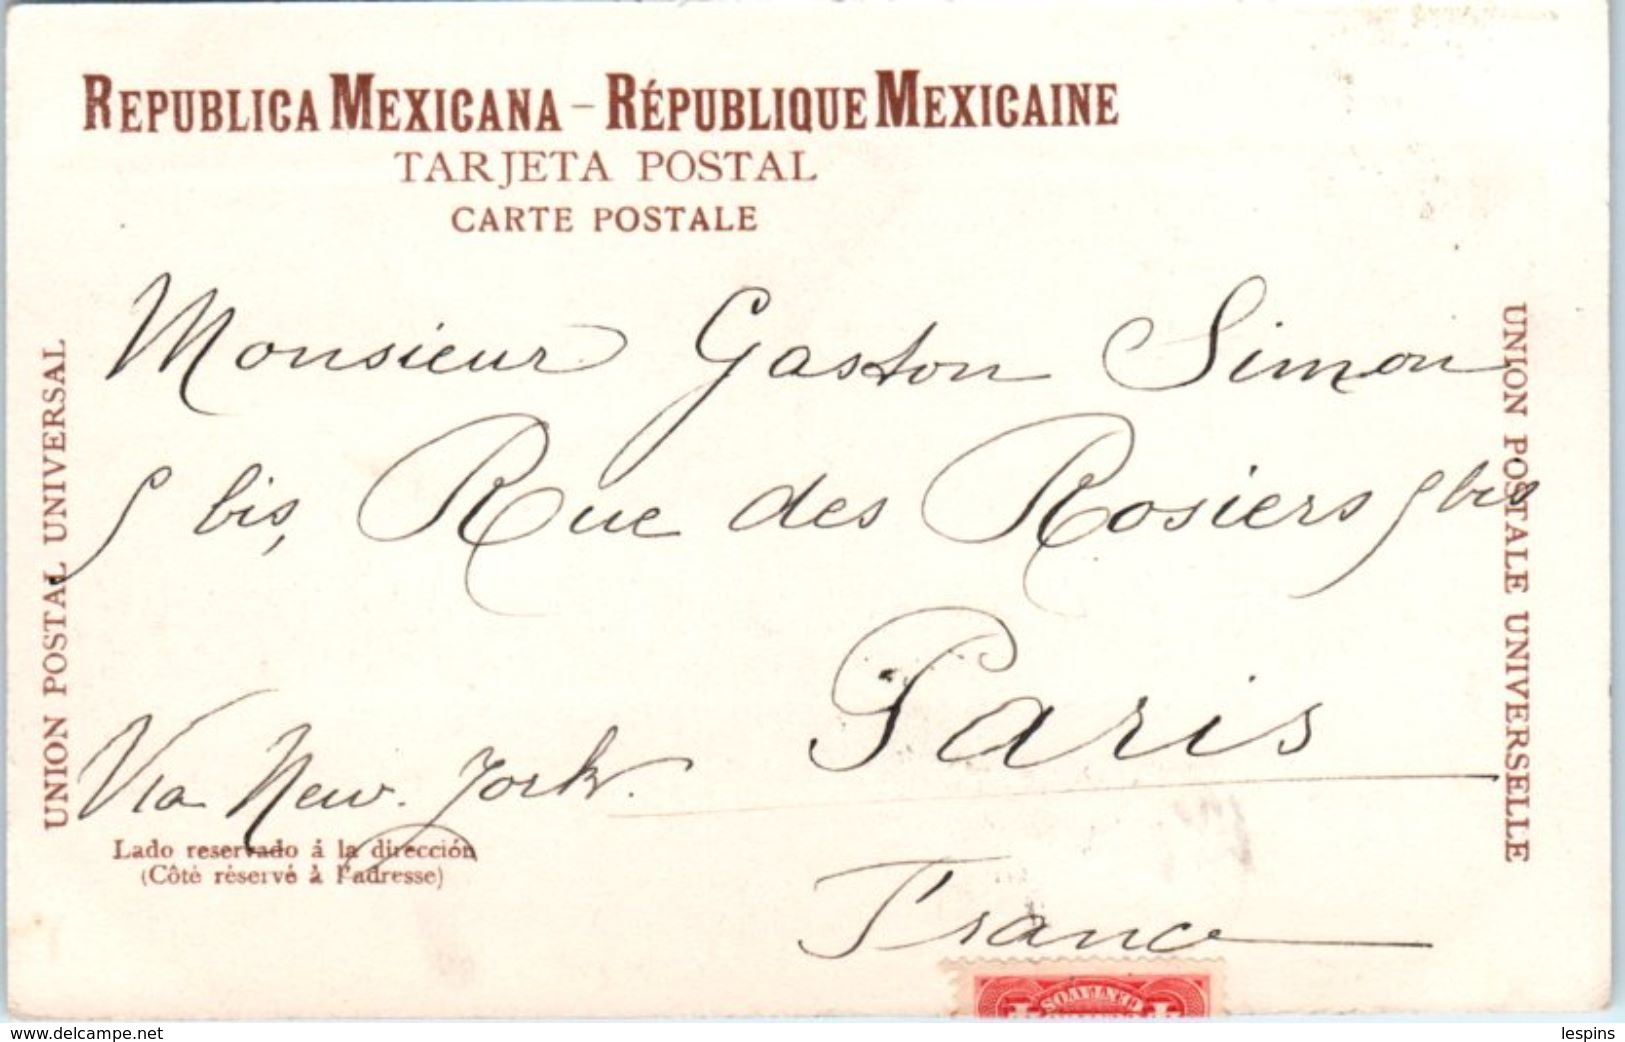 REPUBLICA MEXICANA - RÉPUBLIQUE MEXICAINE
TARJETA POSTAL
CARTE POSTALE
Monsieur Gaston Simon
9 bis, Rue des Rosiers 9 bis
Paris
Via New-York.
France
Lado reservado á la dirección
(Côté réservé à l'adresse)
UNION POSTAL UNIVERSAL
UNION POSTALE UNIVERSELLE
CENTAVOS
www.delcampe.net
lespins